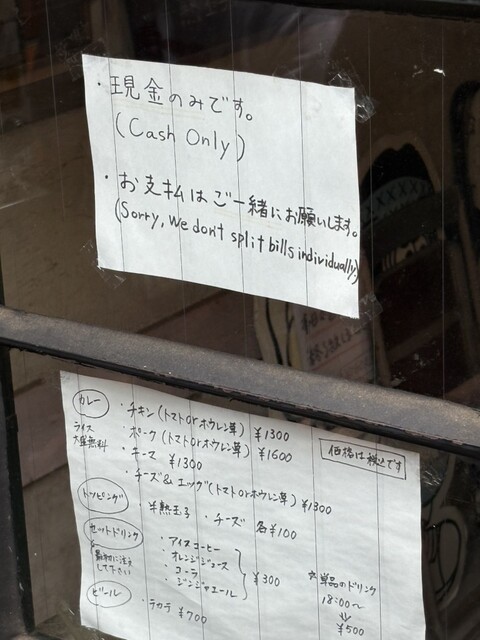 ・現金のみです。
(Cash Only)
・お支払はご一緒にお願いします。
(Sorry, we don't split bills individually.)
カレー
ライス
大盛無料
・チキン(トマトorホウレン草) ¥1300
・ポーク(トマトorホウレン草) ¥1600
・キーマ ¥1300
・チーズ&エッグ(トマトorホウレン草) ¥1300
価格は税込です
トッピング
・半熟玉子 ・チーズ 各¥100
セットドリンク
最初に注文
して下さい
・アイスコーヒー
・オレンジジュース
・コーラ
・ジンジャエール
¥300
*単品のドリンク
18:00〜
↓
¥500
ビール
・テカテ ¥700